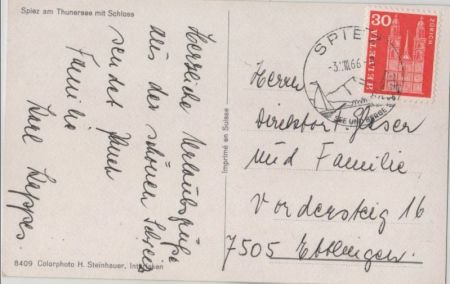 Spiez am Thunersee mit Schloss
Herzliche Urlaubsgrüße
aus der schönen Schweiz
sendet Ihnen
Familie
Karl Kappes.
8409 Colorphoto H. Steinhauer, Interlaken
Imprimé en Suisse
SPIEZ
-3.VIII.66
SEE UND BERGE
30
HELVETIA
ZÜRICH
Herrn
Direktor Glaser
und Familie
Vordersteig 16
7505 Ettlingen